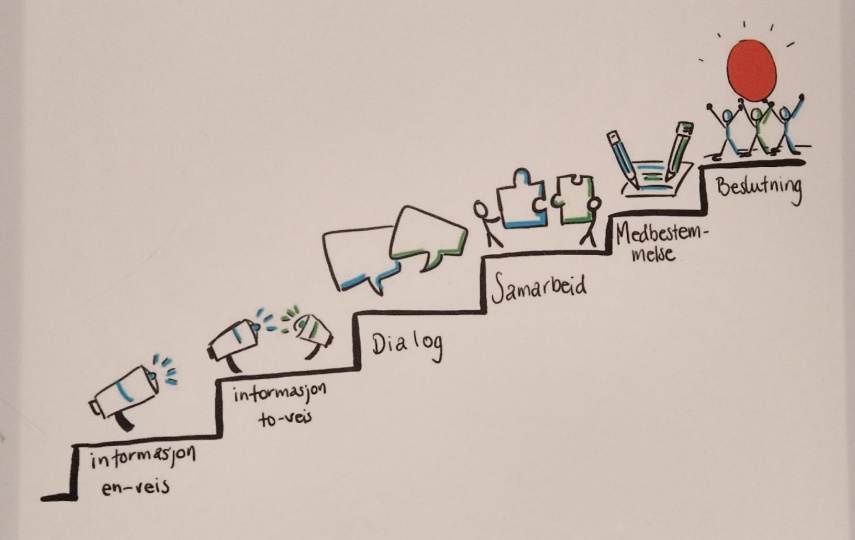 informasjon
en-veis
informasjon
to-veis
Dialog
Samarbeid
Medbestem-
melse
Beslutning